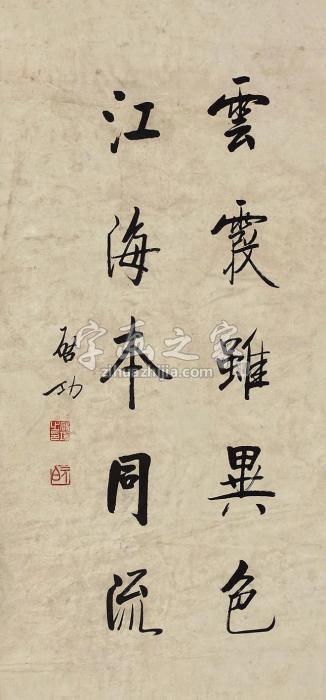 雲霞雖異色
江海本同流
启功
字画之家
zihuazhijia.com